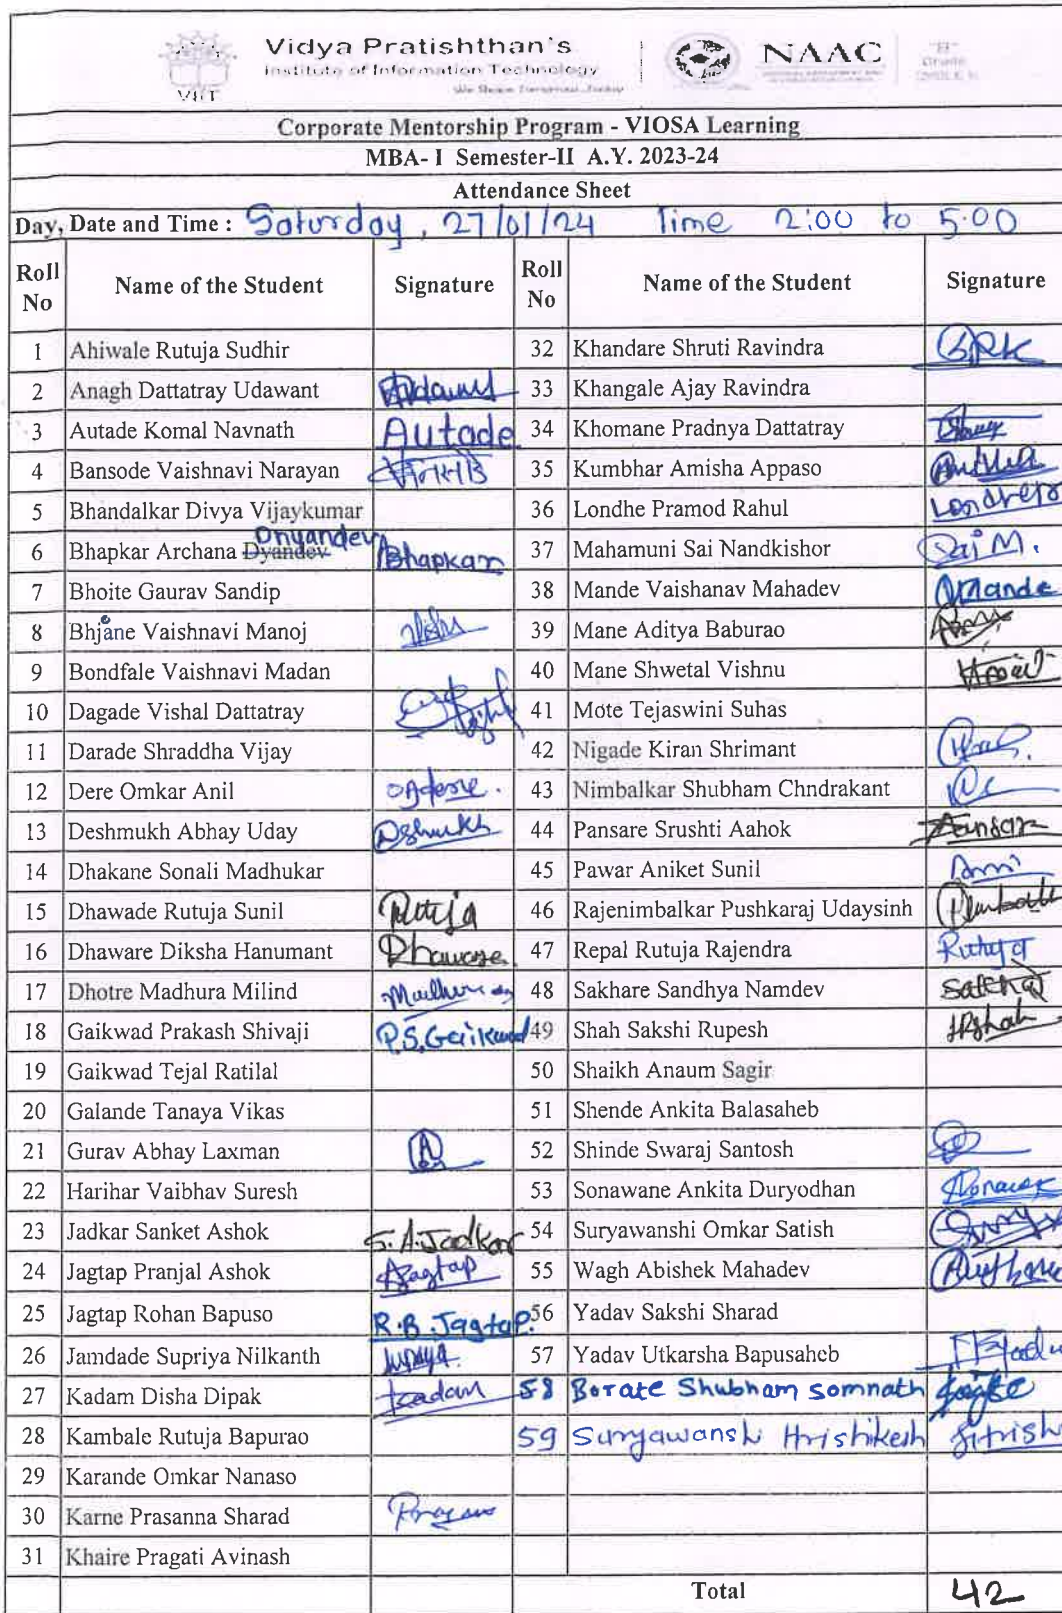 Vidya Pratishthan's
Institute of Information Technology
VIIT
NAAC
Corporate Mentorship Program - VIOSA Learning
MBA- I Semester-II A.Y. 2023-24
Attendance Sheet
Day, Date and Time : Saturday, 27/01/24 Time 2:00 to 5:00
Roll No Name of the Student Signature Roll No Name of the Student Signature
1 Ahiwale Rutuja Sudhir 32 Khandare Shruti Ravindra SRK
2 Anagh Dattatray Udawant 33 Khangale Ajay Ravindra
3 Autade Komal Navnath Autade 34 Khomane Pradnya Dattatray
4 Bansode Vaishnavi Narayan 35 Kumbhar Amisha Appaso
5 Bhandalkar Divya Vijaykumar 36 Londhe Pramod Rahul
6 Bhapkar Archana Dyandev Dnyandev Bhapkar 37 Mahamuni Sai Nandkishor Sai M.
7 Bhoite Gaurav Sandip 38 Mande Vaishanav Mahadev Mande
8 Bhjane Vaishnavi Manoj 39 Mane Aditya Baburao
9 Bondfale Vaishnavi Madan 40 Mane Shwetal Vishnu
10 Dagade Vishal Dattatray 41 Mote Tejaswini Suhas
11 Darade Shraddha Vijay 42 Nigade Kiran Shrimant
12 Dere Omkar Anil 43 Nimbalkar Shubham Chndrakant
13 Deshmukh Abhay Uday 44 Pansare Srushti Aahok
14 Dhakane Sonali Madhukar 45 Pawar Aniket Sunil
15 Dhawade Rutuja Sunil 46 Rajenimbalkar Pushkaraj Udaysinh
16 Dhaware Diksha Hanumant Dhaware 47 Repal Rutuja Rajendra Rutuja
17 Dhotre Madhura Milind 48 Sakhare Sandhya Namdev
18 Gaikwad Prakash Shivaji P.S.Gaikwad 49 Shah Sakshi Rupesh
19 Gaikwad Tejal Ratilal 50 Shaikh Anaum Sagir
20 Galande Tanaya Vikas 51 Shende Ankita Balasaheb
21 Gurav Abhay Laxman 52 Shinde Swaraj Santosh
22 Harihar Vaibhav Suresh 53 Sonawane Ankita Duryodhan
23 Jadkar Sanket Ashok S.A.Jadkar 54 Suryawanshi Omkar Satish
24 Jagtap Pranjal Ashok Jagtap 55 Wagh Abishek Mahadev
25 Jagtap Rohan Bapuso R.B.Jagtap. 56 Yadav Sakshi Sharad
26 Jamdade Supriya Nilkanth 57 Yadav Utkarsha Bapusaheb
27 Kadam Disha Dipak Kadam 58 Borate Shubham Somnath
28 Kambale Rutuja Bapurao 59 Suryawanshi Hrishikesh
29 Karande Omkar Nanaso
30 Karne Prasanna Sharad
31 Khaire Pragati Avinash
Total 42